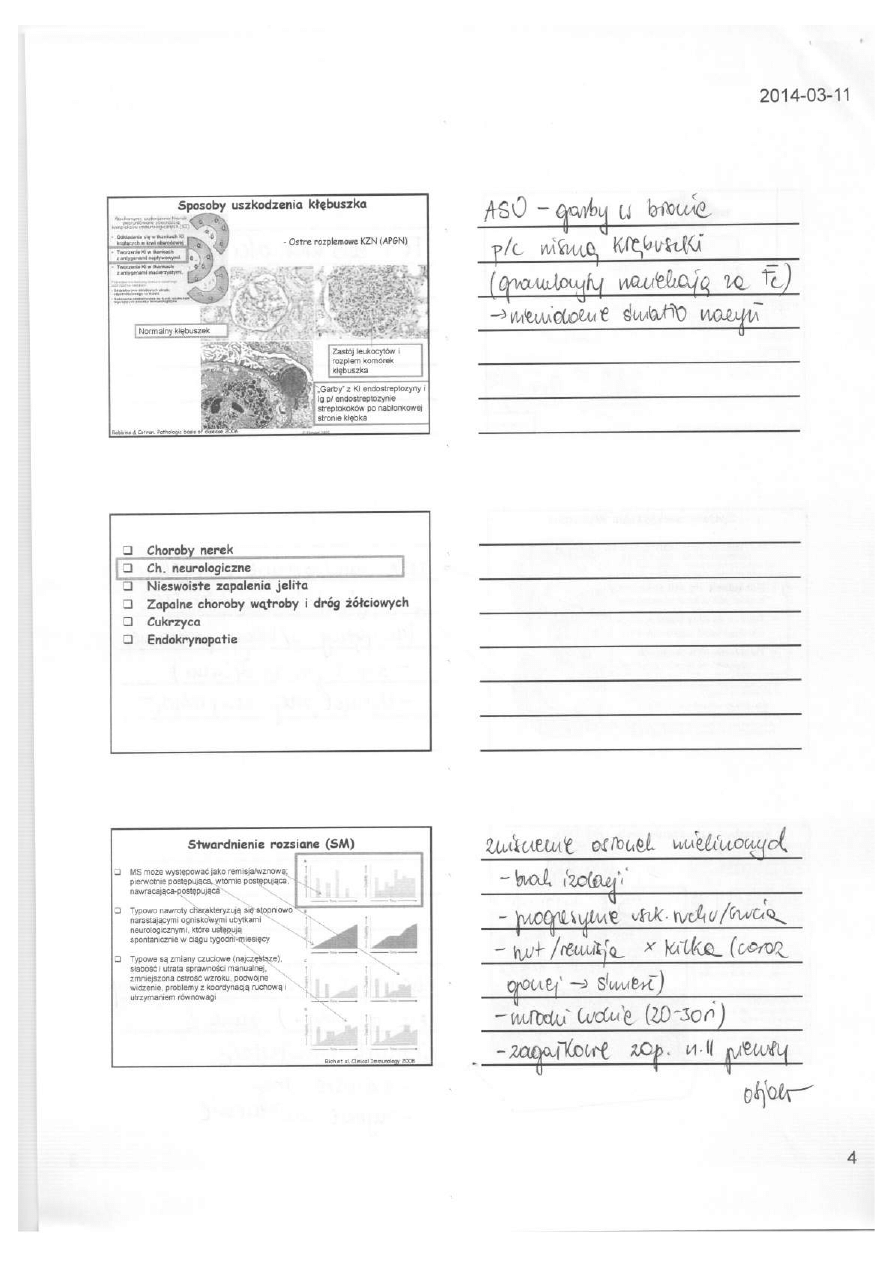 2014-03-11
Sposoby uszkodzenia kłębuszka
- Ostre rozplemowe KZN (APGN)
Normalny kłębuszek
Zastój leukocytów i
rozplem komórek
kłębuszka
„Garby” z KI endostreptozyny i
Ig p/ endostreptozynie
streptokoków po nabłonkowej
stronie kłębka
Robbins & Cotran, Pathologic basis of disease 2006
ASO – garby w bronie
p/c niszczą kłębuszki
(granulocyty naciekają za Fc)
→ niewidoczne światło naczyń
❑ Choroby nerek
❑ Ch. neurologiczne
❑ Nieswoiste zapalenia jelita
❑ Zapalne choroby wątroby i dróg żółciowych
❑ Cukrzyca
❑ Endokrynopatie
Stwardnienie rozsiane (SM)
❑ MS może występować jako remisja/wznowa,
pierwotnie postępująca, wtórnie postępująca,
nawracająca-postępująca
❑ Typowo nawroty charakteryzują się stopniowo
narastającymi ogniskowymi ubytkami
neurologicznymi, które ustępują
spontanicznie w ciągu tygodni-miesięcy
❑ Typowe są zmiany czuciowe (najczęstsze),
słabość i utrata sprawności manualnej,
zmniejszona ostrość wzroku, podwójne
widzenie, problemy z koordynacją ruchową i
utrzymaniem równowagi
Rich et al, Clinical Immunology 2008
zniszczenie osłonek mielinowych
- brak izolacji
- progresywne uszk. ruchu/czucia
- rzut/remisja × kilka (coraz
gorzej → śmierć)
- młodzi ludzie (20-30r)
- zagałkowe zap. n. II pierwszy
objaw
4